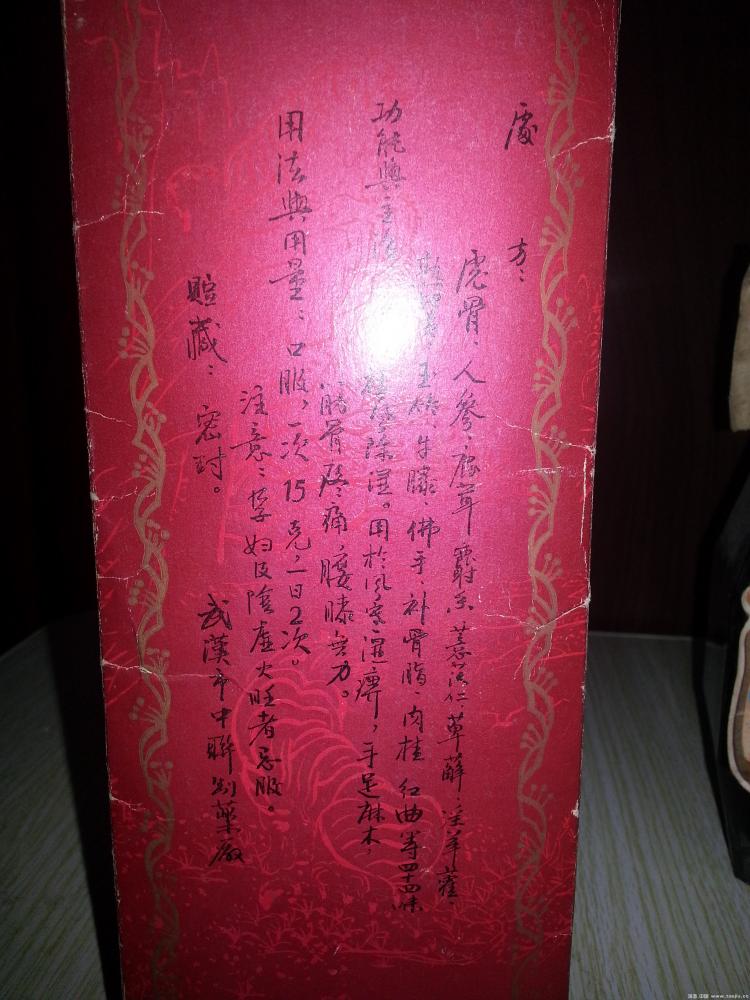 處方：
虎骨、人參、鹿茸、麝香、薏苡仁、萆薢、淫羊藿、
玉竹、牛膝、佛手、補骨脂、肉桂、紅曲等四十四味
功能與主治
除濕。用於風寒濕痹，手足麻木，
筋骨疼痛，腰膝無力。
用法與用量：口服，一次15克，一日2次。
注意：孕婦及陰虛火旺者忌服。
貯藏：密封。
武漢市中聯制藥廠